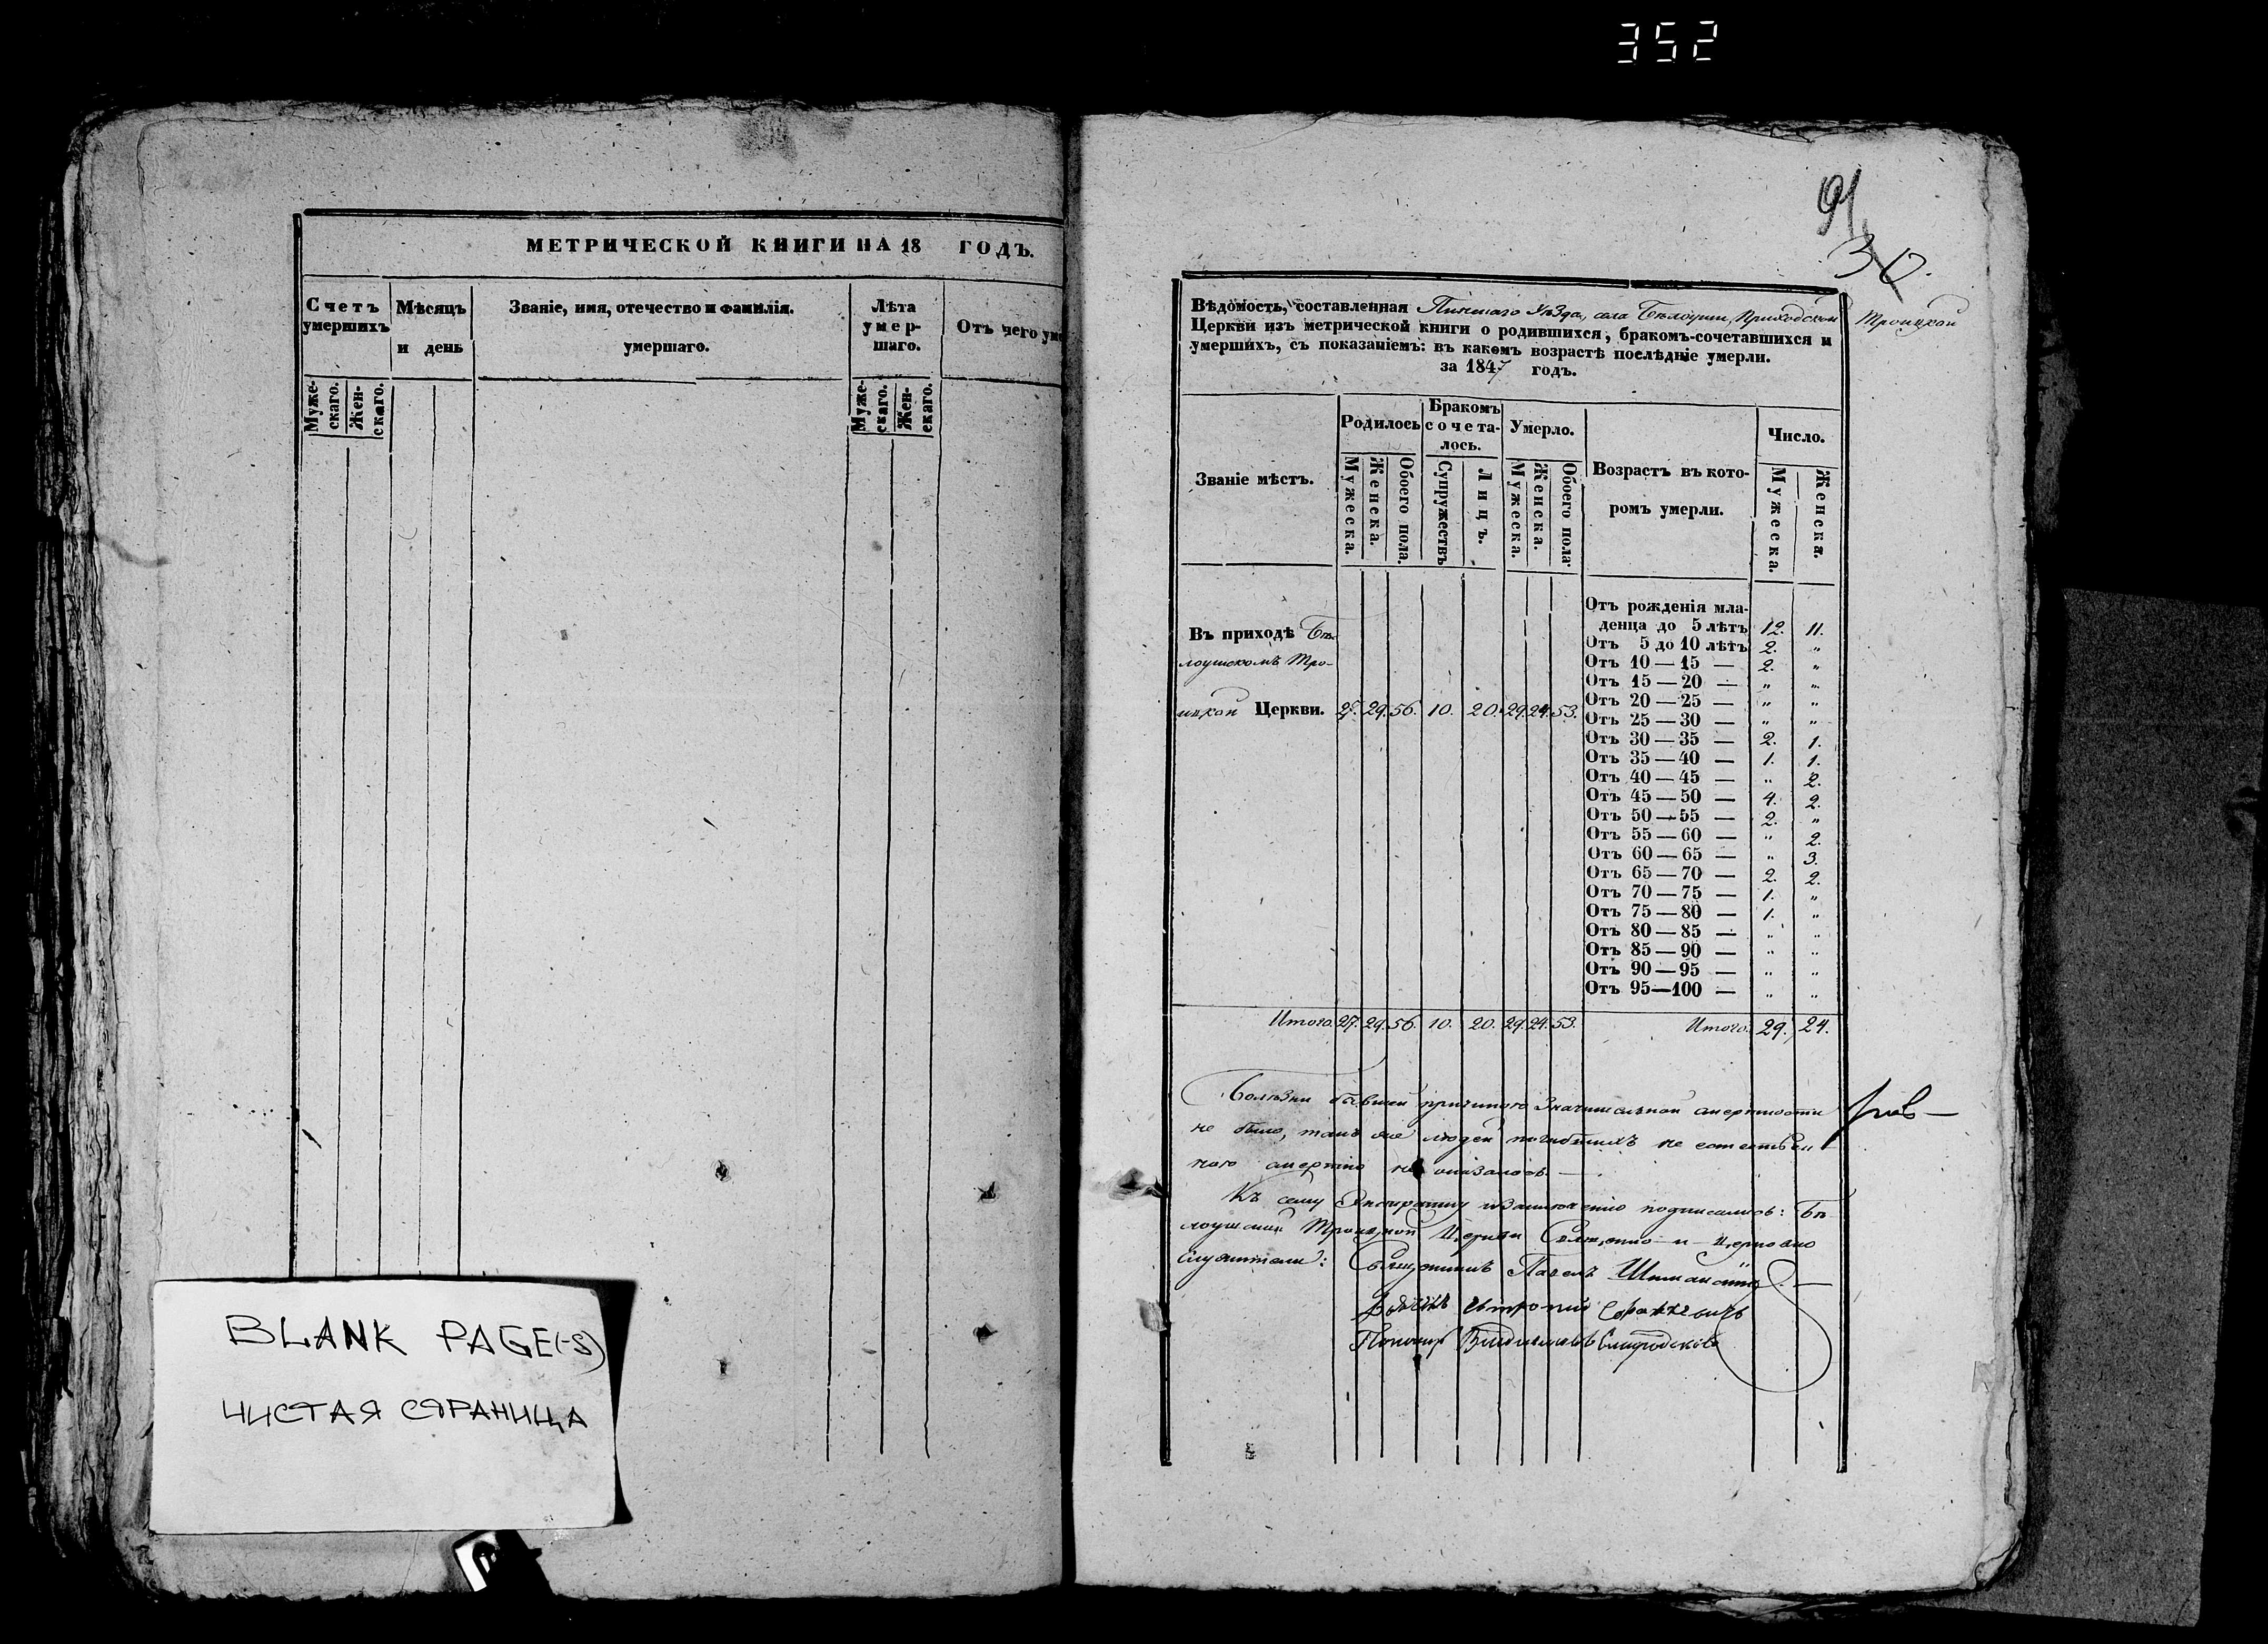 352
МЕТРИЧЕСКОЙ КНИГИ НА 18 ГОДЪ.
Счетъ умершихъ
Мѣсяцъ и день
Званіе, имя, отечество и фамилія. умершаго.
Лѣта умер-шаго.
Отъ чего уме
Муже-скаго. Жен-скаго.
Муже-скаго. Жен-скаго.
BLANK PAGE(-S)
ЧИСТАЯ СТРАНИЦА
91
30.
Вѣдомость, составленная Пинскаго Уѣзда, села Бѣлоуши, Приходской Троицкой
Церкви изъ метрической книги о родившихся, бракомъ-сочетавшихся и
умершихъ, съ показаніемъ: въ какомъ возрастѣ послѣдніе умерли.
за 1847 годъ.
Званіе мѣстъ.
Родилось
Бракомъ сочета-лось.
Умерло.
Возрастъ въ кото-ромъ умерли.
Число.
Мужеска. Женска. Обоего пола. Супружествъ Лицъ. Мужеска. Женска. Обоего пола. Мужеска. Женска.
Въ приходѣ Бѣ-
лоушскомъ Тро-
ицкой Церкви. 27. 29. 56. 10. 20. 29. 24. 53.
Отъ рожденія мла-
денца до 5 лѣтъ 12. 11.
Отъ 5 до 10 лѣтъ 2. „
Отъ 10 — 15 — 2. „
Отъ 15 — 20 — „ „
Отъ 20 — 25 — „ „
Отъ 25 — 30 — „ „
Отъ 30 — 35 — 2. 1.
Отъ 35 — 40 — 1. 1.
Отъ 40 — 45 — „ 2.
Отъ 45 — 50 — 4. 2.
Отъ 50 — 55 — 2. „
Отъ 55 — 60 — „ 2.
Отъ 60 — 65 — „ 3.
Отъ 65 — 70 — 2. 2.
Отъ 70 — 75 — 1. „
Отъ 75 — 80 — 1. „
Отъ 80 — 85 — „ „
Отъ 85 — 90 — „ „
Отъ 90 — 95 — „ „
Отъ 95—100 — „ „
Итого. 27. 29. 56. 10. 20. 29. 24. 53. Итого. 29. 24.
Болѣзни бывшей причиною значительной смертности
не было, такъ же людей погибшихъ не естествен-
ною смертію не оказалось. —
Къ сему экстракту и заключенію подписались: Бѣ-
лоушской Троицкой Церкви Священно- и церковно
служители: Священникъ Павелъ Шиманскій
Дьячокъ
Пономарь